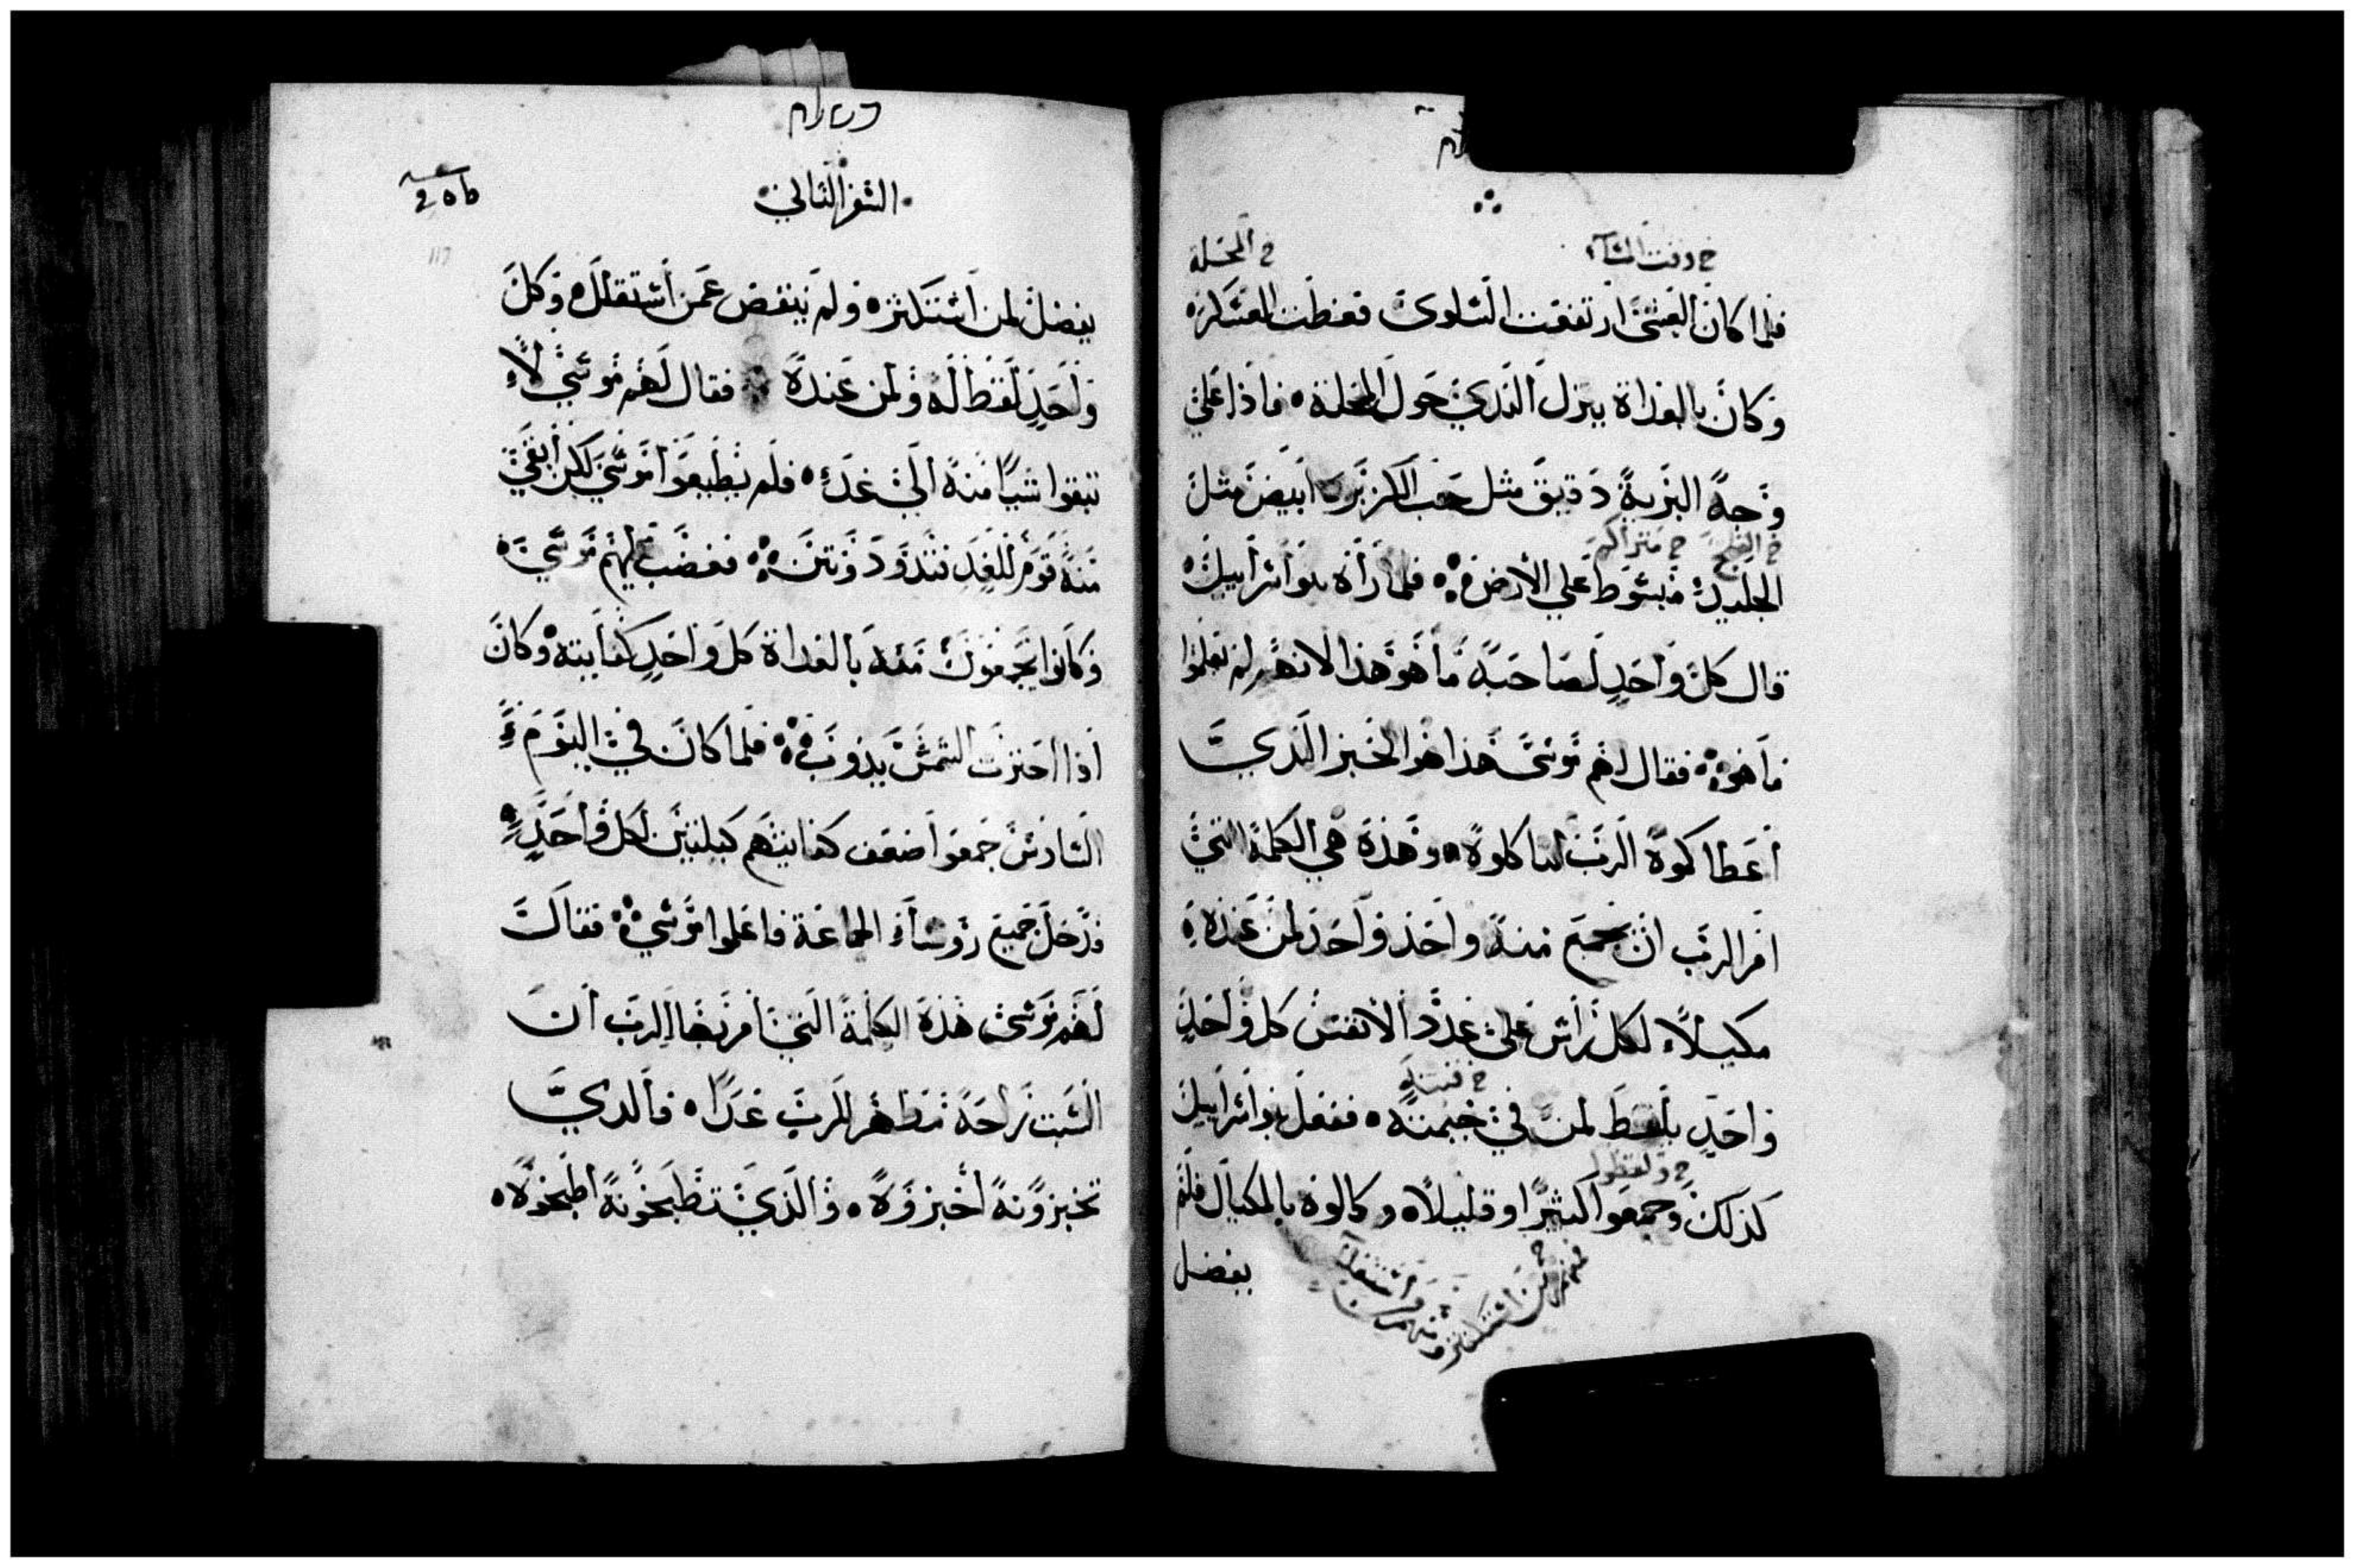 خ وقت المسآء
خ المحلة
فلما كان العشى ارتفعت السلوى فغطت العسكر
وكان بالغداة ينزل الندي حول المحلة فاذا على
وجه البرية دقيق مثل حب الكزبره ابيض مثل
خ الثلج خ متراكم
الجليد مبسوط على الأرض فلما رأه بنو أسرأييل
قال كل وأحد لصاحبه ما هو هذا لانهم لم يعلموا
ما هو فقال لهم موسى هذا هو الخبز الذي
أعطاكموه الرب لتاكلوه وهذه هي الكلمة التي
امر الرب ان يجمع منه واحد وأحد لمن عنده
مكيلاً لكل رأس على عدد الأنفس كل وأحد
خ قبته
واحد يلقط لمن في خيمته ففعل بنو أسراييل
خ ولقطوا
كذلك وجمعوا كثيراً وقليلاً وكالوه بالمكيال فلم
خ فمنهم من استكثر ومنهم من استقل
يفضل
السفر الثاني
يفضل لمن أستكثر ولم ينقص عمن أستقلل وكل
وأحد لقط له ولمن عنده فقال لهم موسى لا
تبقوا شياً منه الى غد فلم يطيعوا موسى لكن أبقى
منه قوم للغد فتدود ونتن فغضب عليهم موسى
وكانوا يجمعون منه بالغداة كل واحد كفايته وكان
أذا احترت الشمس يذوب فلما كان في اليوم
السادس جمعوا ضعف كفايتهم كيلتين لكل وأحد
فدخل جميع روساء الجماعة فاعلموا موسى فقال
لهم موسى هذه الكلمة التي أمر بها الرب أن
السبت راحة مطهر للرب غداً فالذي
تخبزونه أخبزوه والذي تطبخونه اطبخوه